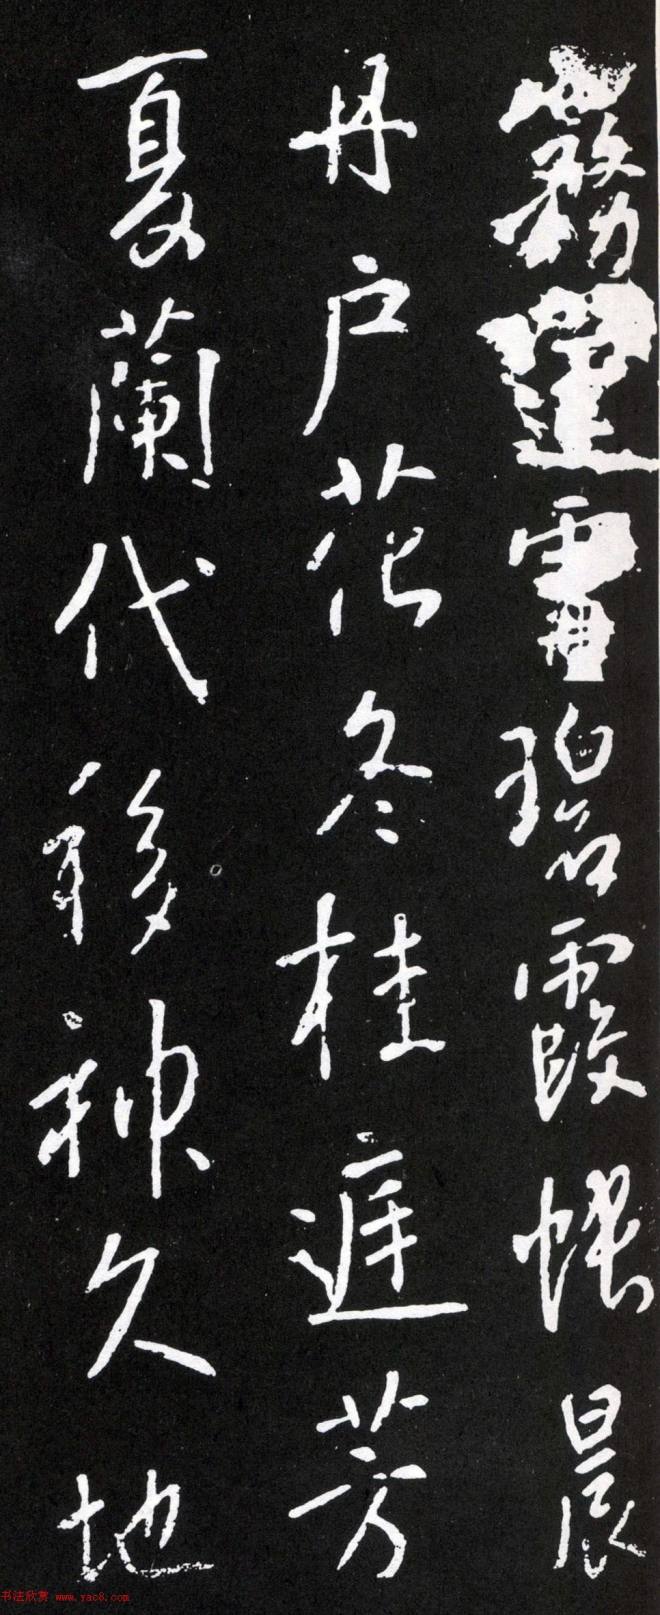 霧筵霄碧霞帳晨
丹户花冬桂庭芳
夏蘭代移神久地
书法欣赏 www.yac8.com